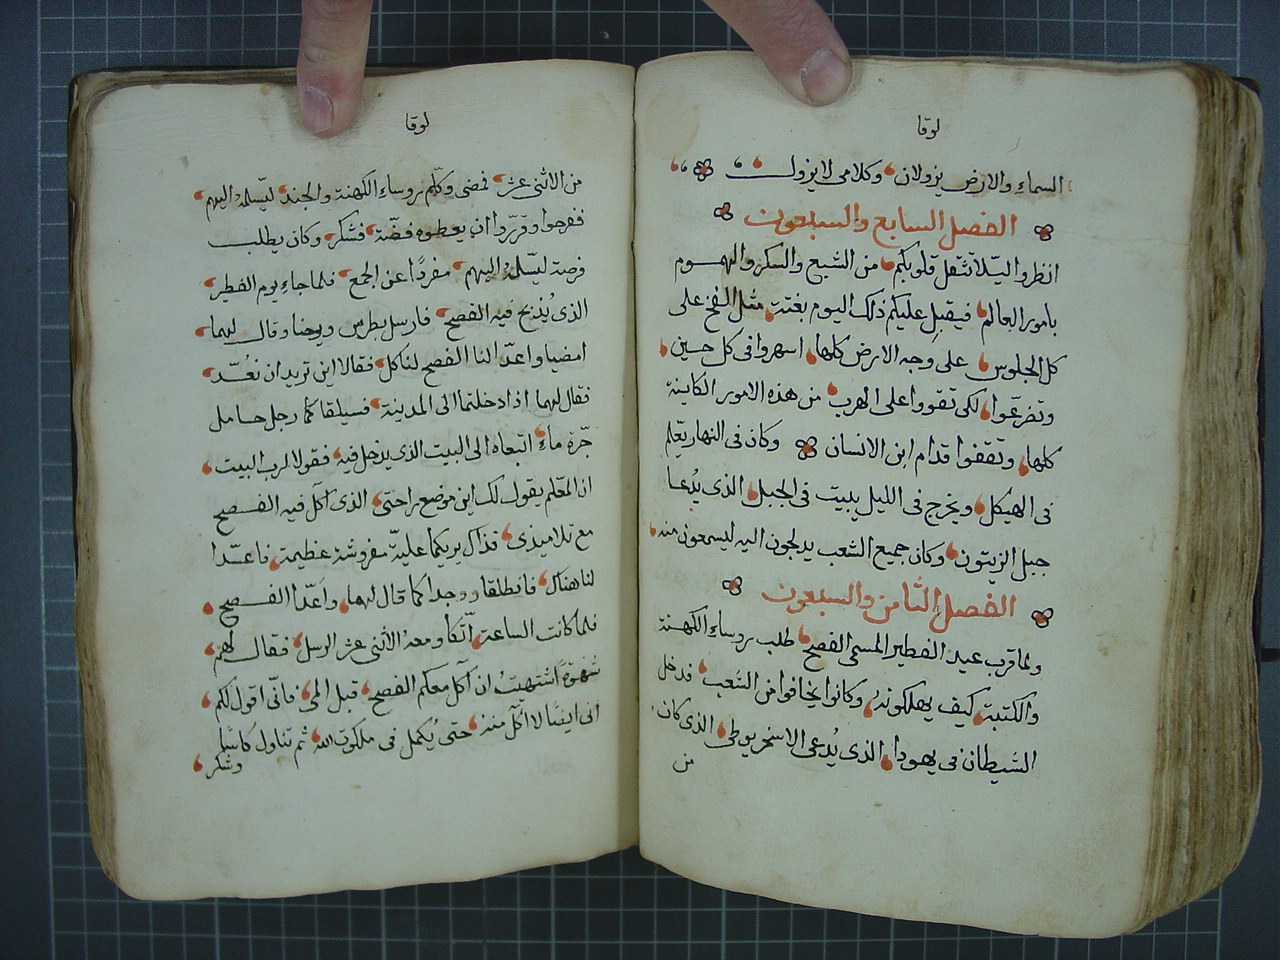 لوقا
السماء والارض يزولان وكلامى لا يزول
الفصل السابع والسبعون
انظروا ليلا تثقل قلوبكم من الشبع والسكر والهموم
بامور العالم فيقبل عليكم ذلك اليوم بغتة مثل الفخ على
كل الجلوس على وجه الارض كلها اسهروا فى كل حين
وتضرعوا لكى تقووا على الهرب من هذه الامور الكاينة
كلها وتقفوا قدام ابن الانسان وكان فى النهار يعلم
فى الهيكل ويخرج فى الليل يبيت فى الجبل الذى يدعا
جبل الزيتون وكان جميع الشعب يدلجون اليه ليسمعون منه
الفصل الثامن والسبعون
ولما قرب عيد الفطير المسمى الفصح طلب روساء الكهنة
والكتبة كيف يهلكونه وكانوا يخافوا من الشعب فدخل
الشيطان فى يهودا الذى يُدعى الاسخريوطى الذى كان
من
لوقا
من الاثنى عشر فمضى وكلّم روساء الكهنة والجند ليسلمه اليهم
ففرحوا وقرّروا ان يعطوه فضّة فشكر وكان يطلب
فرصة ليسلمه اليهم مفردًا عن الجمع فلما جاء يوم الفطير
الذى يُذبح فيه الفصح فارسل بطرس ويوحنا وقال لهما
امضيا واعدّا لنا الفصح لناكل فقالا اين تريد ان نُعدّ
فقال لهما اذا دخلتما الى المدينة فسيلقاكما رجل حامل
جرّة ماء اتبعاه الى البيت الذى يدخل فيه فقولا لرب البيت
ان المعلم يقول لك اين موضع راحتى الذى آكل فيه الفصح
مع تلاميذى فذاك يريكما عليّة مفروشة عظيمة فاعدّا
لنا هناك فانطلقا ووجدا كما قال لهما واعَدّا الفصح
فلما كانت الساعة اتّكأ ومعه الاثنى عشر الرسل فقال لهم
شهوةً اشتهيتُ ان آكل معكم الفصح قبل المى فانّى اقول لكم
انى ايضًا لا اآكل منه حتى يُكمل فى ملكوت الله ثم تناول كاسًا
وشكر